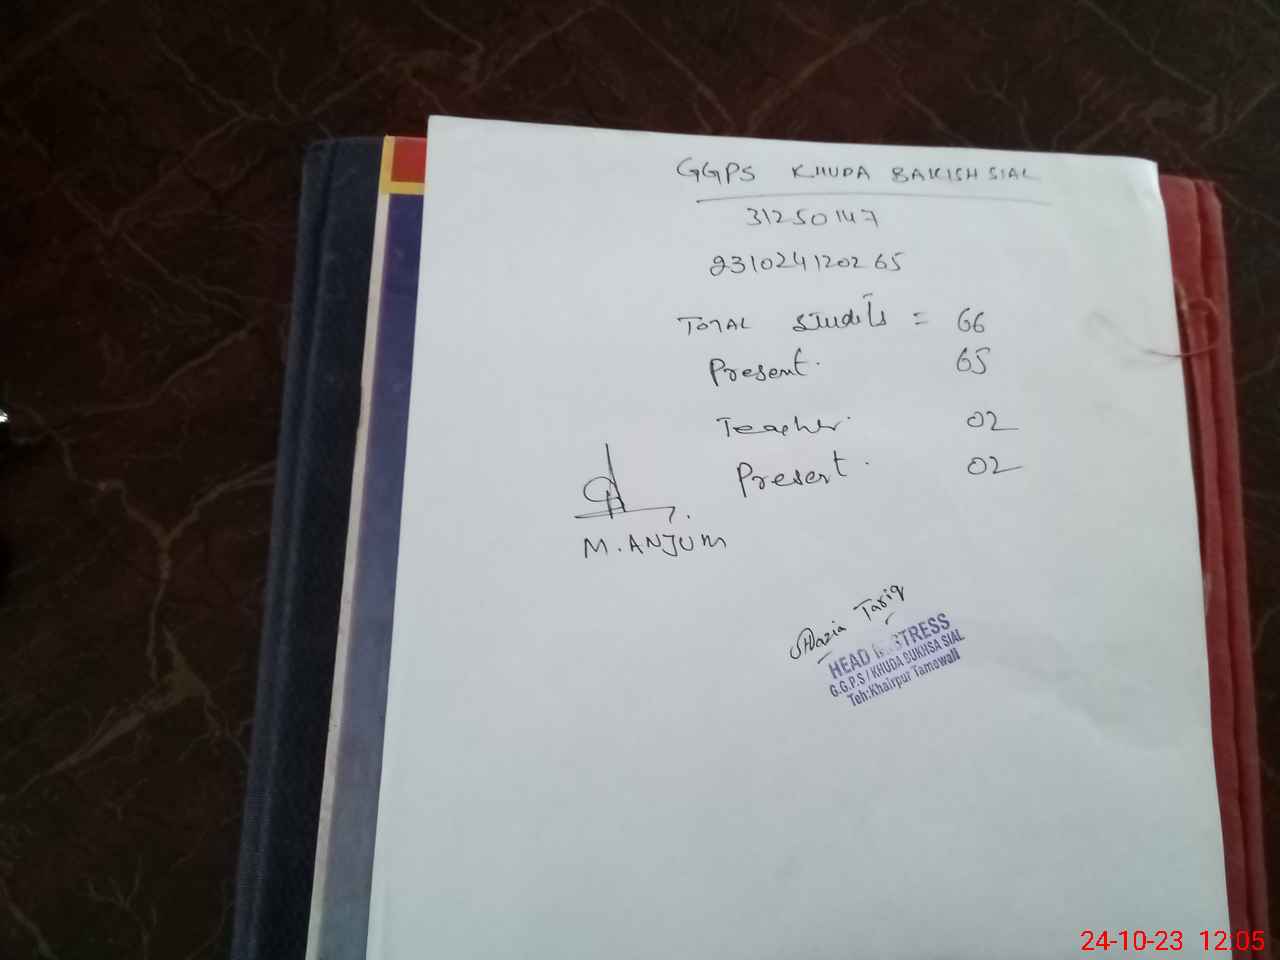 GGPS KHUDA BAKISH SIAL
31250147
231024120265
TOTAL = 66
Present. 65
Teacher. 02
Present. 02
M. ANJUM
Shazia Tariq
HEAD MISTRESS
G.G.P.S / KHUDA BUKHSA SIAL
Teh:Khairpur Tamewali
24-10-23 12:05